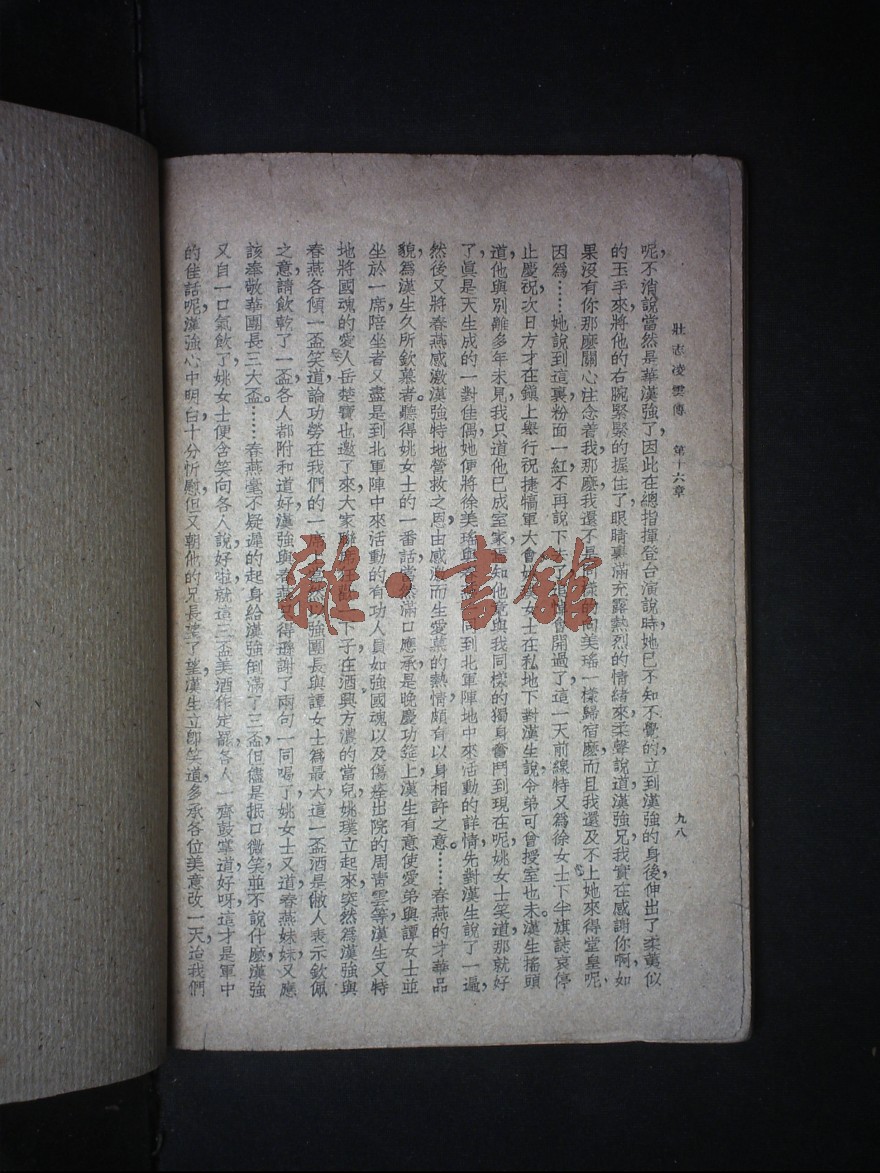 壯志凌雲傳　第十六章　九八
呢，不消說當然是華漢強了，因此在總指揮登台演說時，她已不知不覺的立到漢強的身後，伸出了柔荑似
的玉手來，將他的右腕緊緊的握住了，眼睛裏滿充露熱烈的情緒來，柔聲說道，漢強兄，我實在感謝你啊，如
果沒有你那麼關心注念着我，那麼我還不是同樣的同美瑤一樣歸宿麼，而且我還及不上她來得堂皇呢，
因為……她說到這裏，粉面一紅，不再說下去，追悼會開過了，這一天前線特又為徐女士下半旗誌哀，停
止慶祝，次日方才在鎮上舉行祝捷犒軍大會，姚女士在私地下對漢生說，令弟可曾授室也未。漢生搖頭
道，他與別離多年未見，我只道他已成室家，那知他竟與我同樣的獨身奮鬥到現在呢，姚女士笑道，那就好
了，真是天生成的一對佳偶，她便將徐美瑤與 同到北軍陣地中來活動的詳情，先對漢生說了一遍，
然後又將春燕感激漢強特地營救之恩，由感激而生愛慕的熱情，頗有以身相許之意。……春燕的才華品
貌，為漢生久所欽慕者。聽得姚女士的一番話，當然滿口應承，是晚慶功筵上，漢生有意使愛弟與譚女士並
坐於一席，陪坐者又盡是到北軍陣中來活動的有功人員，如強國魂以及傷痊出院的周青雲等，漢生又特
地將國魂的愛人岳楚寶也邀了來，大家聯 一下子，在酒興方濃的當兒，姚璞立起來，突然為漢強與
春燕各傾一盃，笑道，論功勞在我們的一席上，當然以強團長與譚女士為最大，這一盃酒是敝人表示欽佩
之意，請飲乾了一盃，各人都附和道好，漢強與春燕只得遜謝了兩句，一同喝了，姚女士又道，春燕妹妹又應
該奉敬華團長三大盃。……春燕毫不疑遲的起身給漢強倒滿了三盃，但儘是抿口微笑，並不說什麼，漢強
又自一口氣飲了，姚女士便含笑向各人說，好啦，就這三盃美酒作定罷，各人一齊鼓掌道，好呀，這才是軍中
的佳話呢，漢強心中明白，十分忻慰，但又朝他的兄長望了望，漢生立即笑道，多承各位美意，改一天迨我們
雜·書館